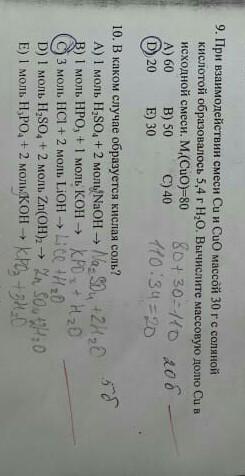 9. При взаимодействии смеси Cu и CuO массой 30 г с соляной
кислотой образовалось 5,4 г H₂O. Вычислите массовую долю Cu в
исходной смеси. Mᵣ(CuO)=80
A) 60 B) 50 C) 40
D) 20 E) 30
80+30=110 20 б
110:34=20
10. В каком случае образуется кислая соль?
A) 1 моль H₂SO₄ + 2 моль NaOH → Na₂SO₄ + 2H₂O 5-б
B) 1 моль HPO₃ + 1 моль KOH → KPO₃ + H₂O
C) 3 моль HCl + 2 моль LiOH → LiCl + H₂O
D) 1 моль H₂SO₄ + 2 моль Zn(OH)₂ → ZnSO₄+2H₂O
E) 1 моль H₃PO₄ + 2 моль KOH → KPO₃ + 3H₂O